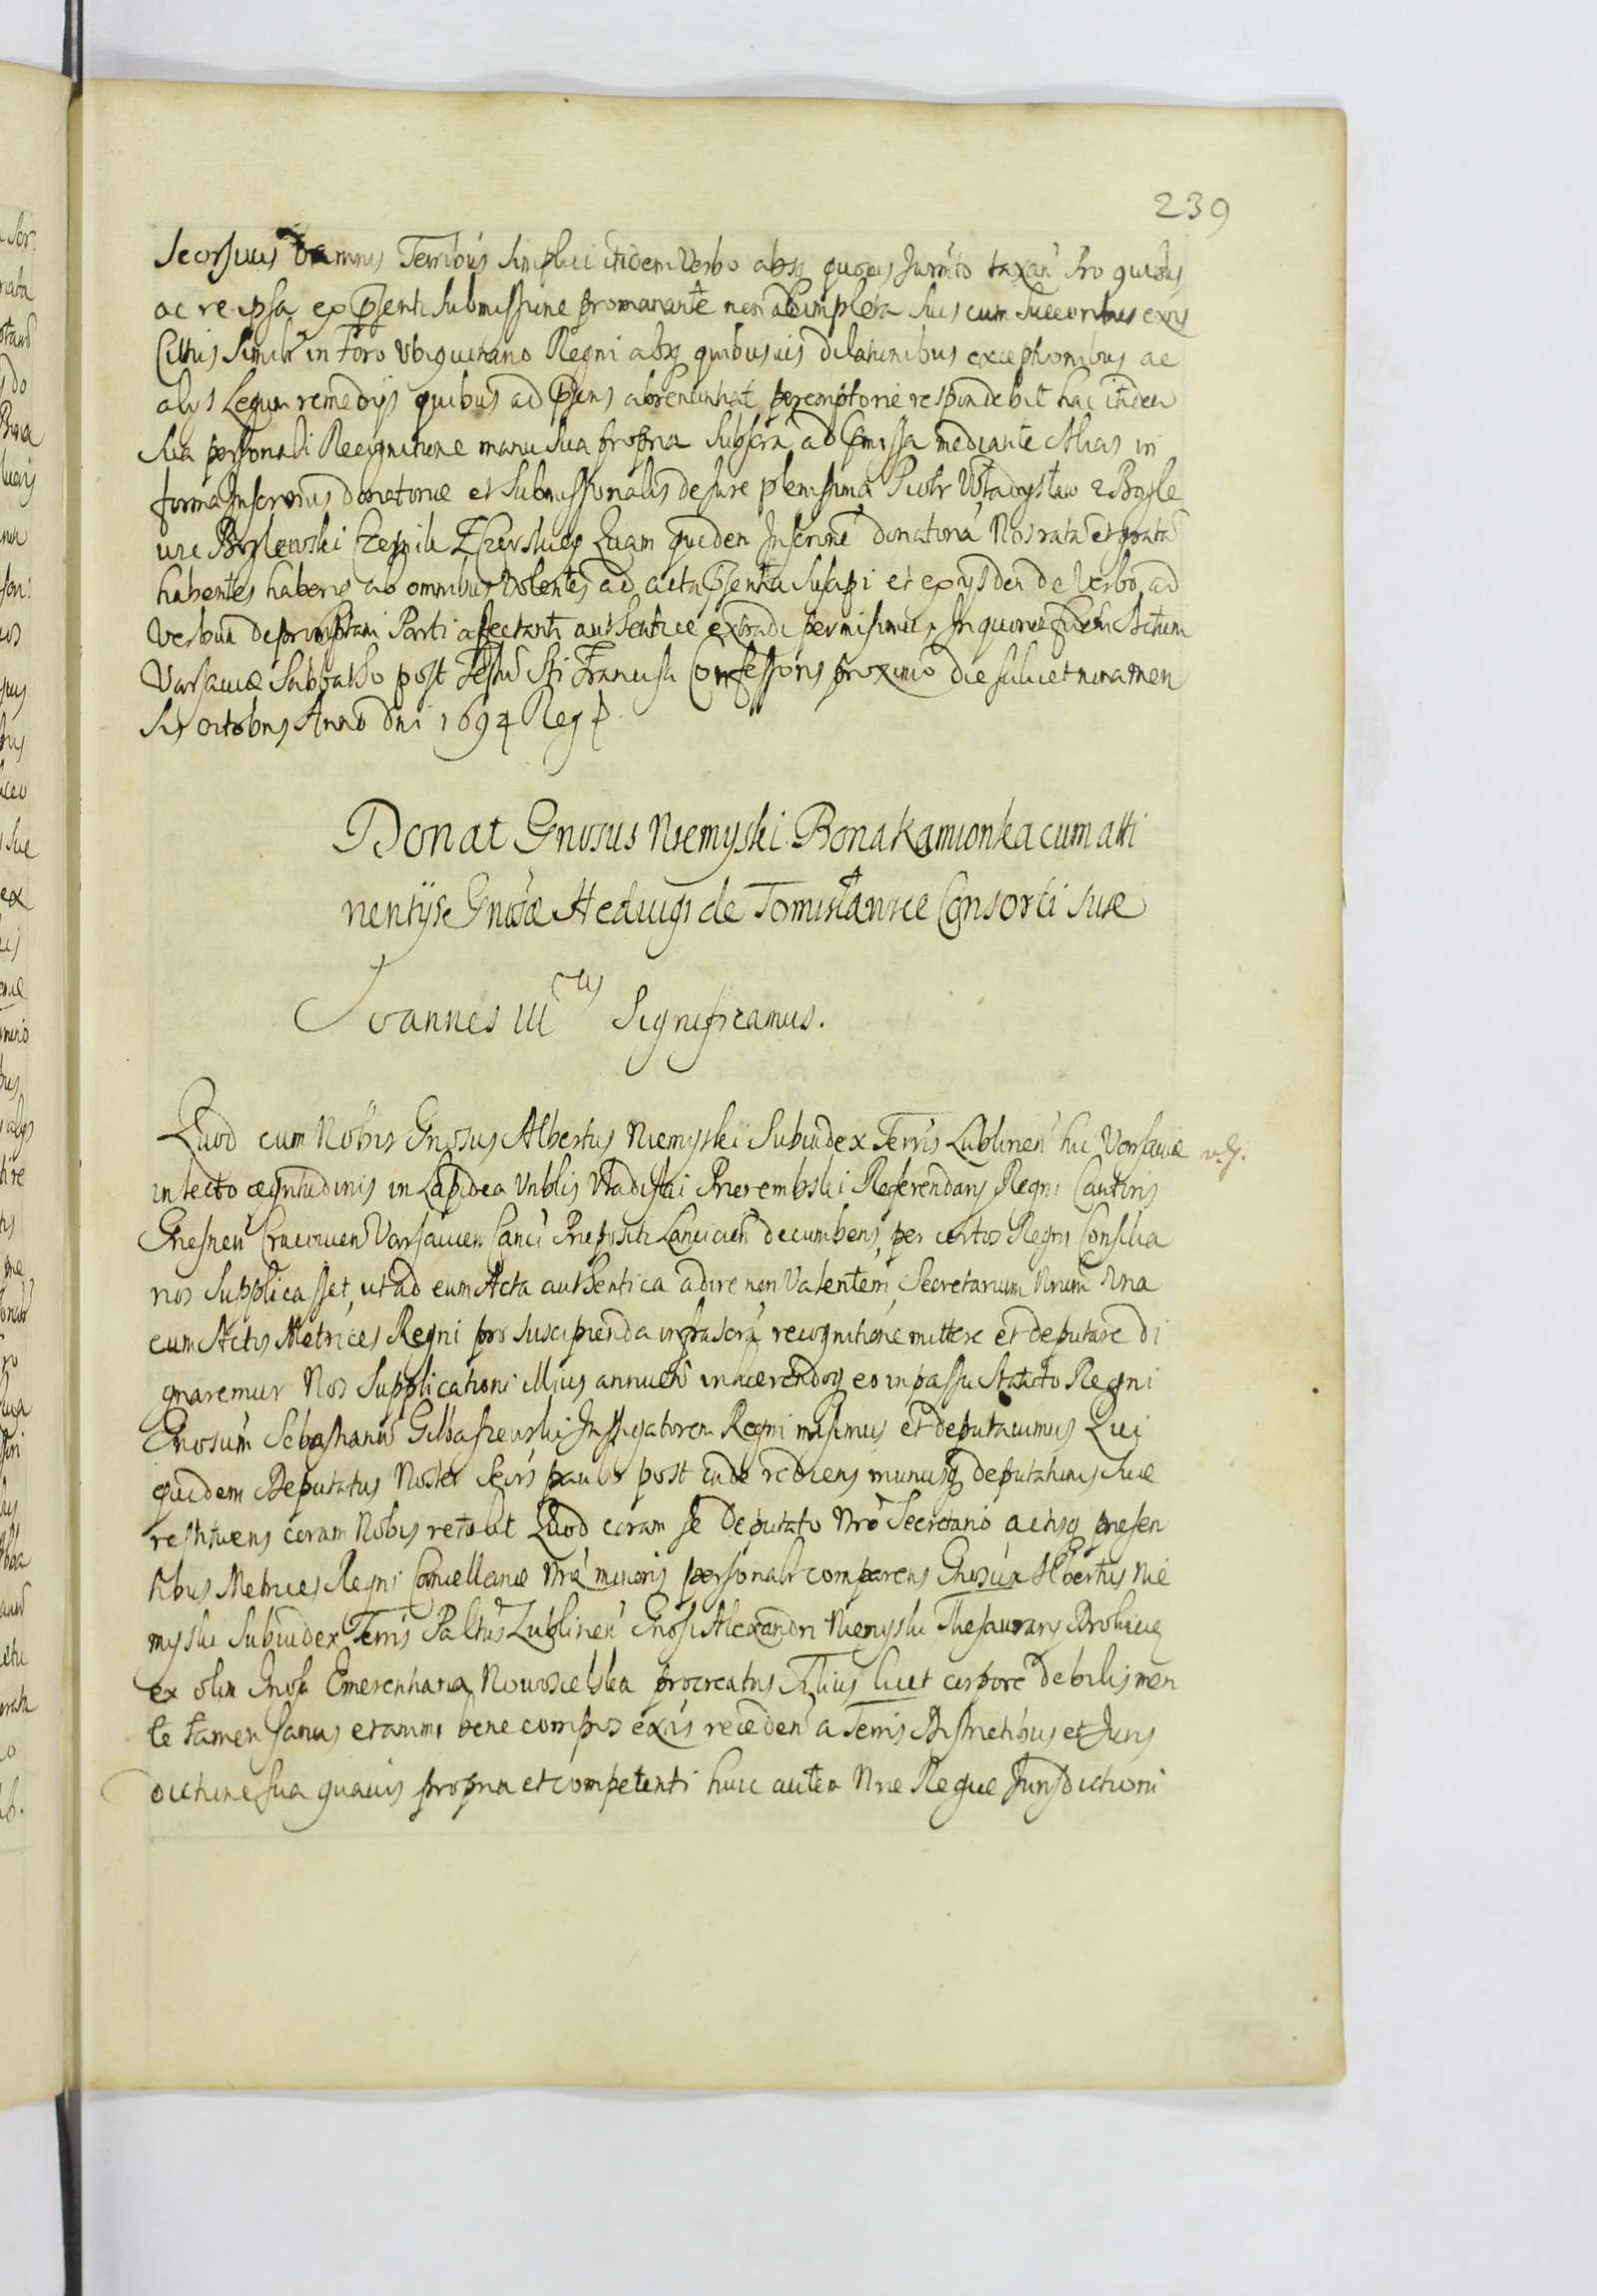 239
Seorsivis damnis Terribus simplici itidem Verbo absq quovis Jurnto taxan Pro quibus
ac re ipsa ex Psenti Submissione promanante non adimpleta Suis cum Succoribus exvis
Cittus Similr in Foro Ubiquitario Regni absq quibusuis dilationibus exceptionibus ac
alys Legum remedys quibus ad Psens abrenuntiat peremptorie respondebit hac itidem
Sua personali Recognitione manu sua propria Subscra ad Pmissa mediante Alias in
forma Inscronis donatoriæ et Submissionalis de Jure plenissima Piotr Władysław z Bysle
wic Byslewski Czesnik Quam quidem Inscrone donatoria Nos rata et grata
habentes haberiq ab omnibus Volentes ad acta Psentia Suscipi et ex ysdem de Verbo ad
Verbum depromptam Parti affectanti authentice extradi permisimus In quorum fidem Actum
Varsaviæ Sabbatho post Festu Sti Francisci Confessoris proximo die scilicet nona Men
sis octobris Anno Dni 1694 Reg P
Donat Gnosus Niemyski Bona Kamionka cum atti
nentijs Gnosæ Hedvigi de Consorti Suæ
Joannes III tius Significamus.
Quod cum Nobis Gnosus Albertus Niemyski Subiudex Terris Lublinen hic Varsaviæ
in lecto ægritudinis in Lapidea Vnblis Vladislai Prierembski Referendary Regni Cantoris
Gnesnen Cracovien Varsavien Canci Præpositi Lancicien decumbens, per certos Regni Consilia
rios Supplicasset, ut ad eum Acta authentica adire non Valentem, Secretarium Nrum Una
cum Actis Metrices Regni pro suscipienda infrascra recognitione mittere et deputare di
gnaremur Nos Supplicationi illius annuen inhærendoq eo in passu Statuto Regni
Gnosum Sebastianu Instigatorem Regni misimus et deputavimus Qui
quidem Deputatus Noster Secris paulo post inde rediens munusq deputationis Suæ
restituens coram Nobis retulit Quod coram se Deputato Nro Secretario actisq presen
tibus Metrices Regni Cancellariæ Nræ minoris personalr comparens Gnosus Albertus Nie
myski Subiudex Terris Paltus Lublinen Gnosi Alexandri Niemyski Thesaurary
ex olim Gnosa Emerentiana Nowosielska procreatus Filius licet corpore debilis men
te tamen sanus et animi bene compos exvis receden a Terris Districtibus et Juris
dictione sua quavis propria et competenti huic autem Nræ Regiæ Jurisdictioni